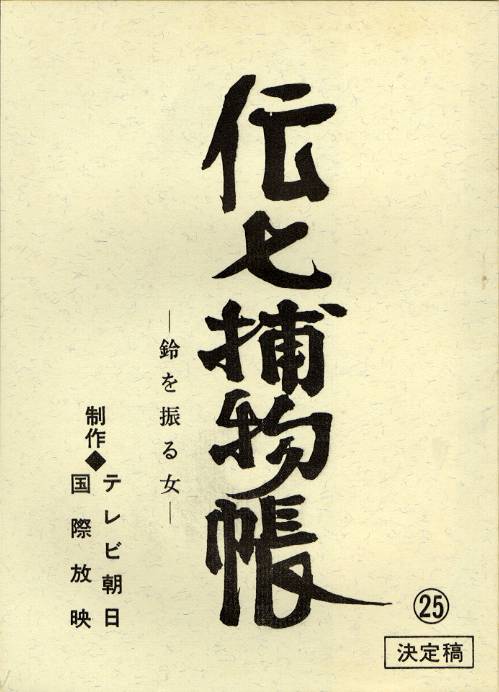 伝七捕物帳
―鈴を振る女―
制作◆テレビ朝日
国際放映
㉕
決定稿